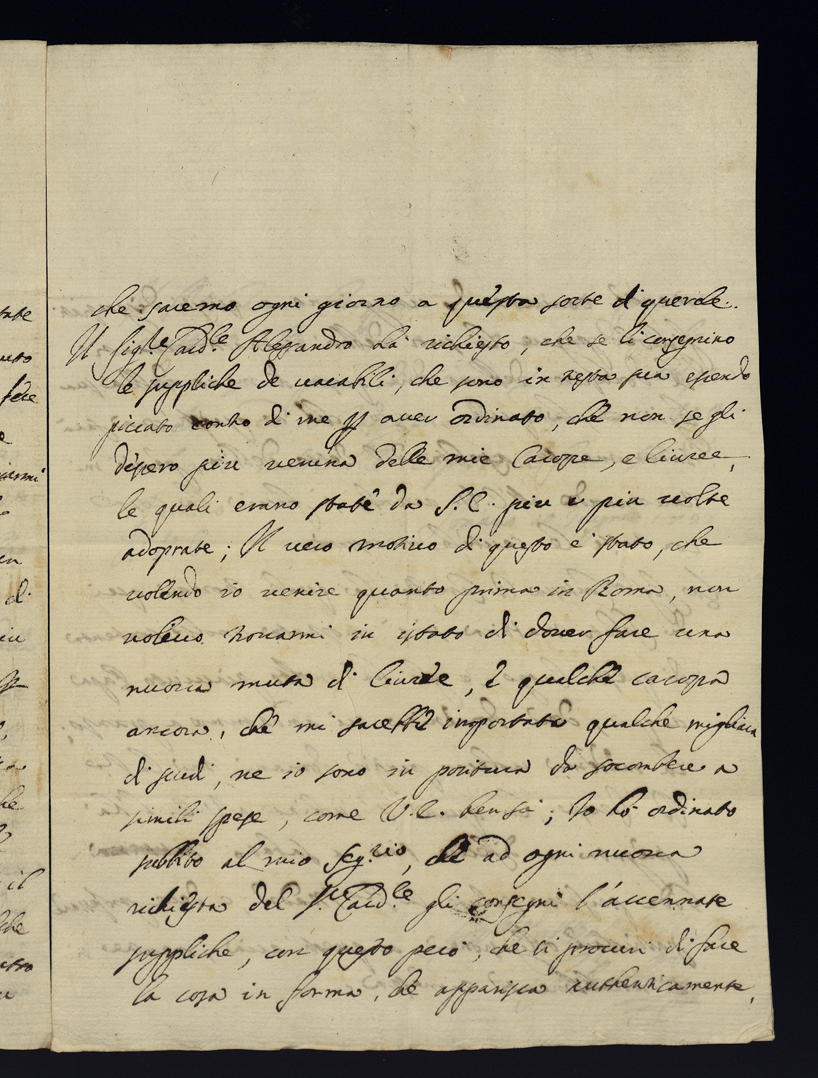 che saremo ogni giorno a questa sorte di querele.
Il Sig.re Card.le Alessandro hà richiesto, che se li consegnino
le suppliche de vacabili, che sono in testa sua essendo
piccato contro di me per aver ordinato, che non se gli
dessero più veruna delle mie Carozze, e livree,
le quali erano state da S.E. più e più volte
adoprate; Il vero motivo di questo è stato, che
volendo io venire quanto prima in Roma, non
volevo trovarmi in istato di dover fare una
nuova muta di livree, e qualche carozza
ancora, che mi sarebbe importata qualche migliara
di scudi, ne io sono in positura da socombere a
simili spese, come V.E. ben sà; Io hò ordinato
subbito al mio Seg.rio, che ad ogni nuova
richiesta del S.re Card.le gli consegni l'accennate
suppliche, con questo però, che si procuri di fare
la cosa in forma, che apparisca authenticamente,